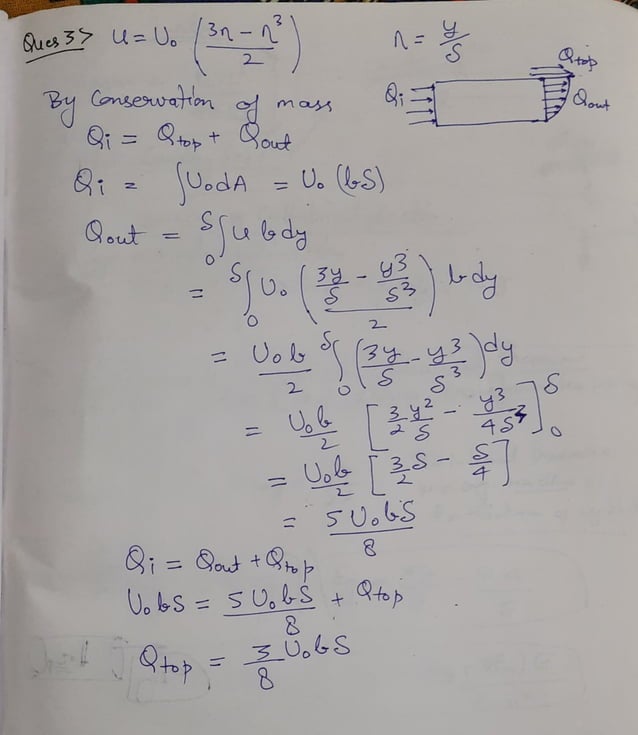 Ques 3> u = U₀ ( (3η − η³) / 2 )  η = y/δ
Qtop
By Conservation of mass  Qi  Qout
Qi = Qtop + Qout
Qi = ∫U₀dA = U₀ (bδ)
Qout = ₀^δ∫ u b dy
= ₀^δ∫ U₀ ( (3y/δ − y³/δ³) / 2 ) b dy
= U₀b/2 ₀^δ∫ ( 3y/δ − y³/δ³ ) dy
= U₀b/2 [ 3/2 y²/δ − y³/4δ³ ]₀^δ
= U₀b/2 [ 3/2 δ − δ/4 ]
= 5U₀bδ / 8
Qi = Qout + Qtop
U₀bδ = 5U₀bδ/8 + Qtop
Qtop = 3/8 U₀bδ